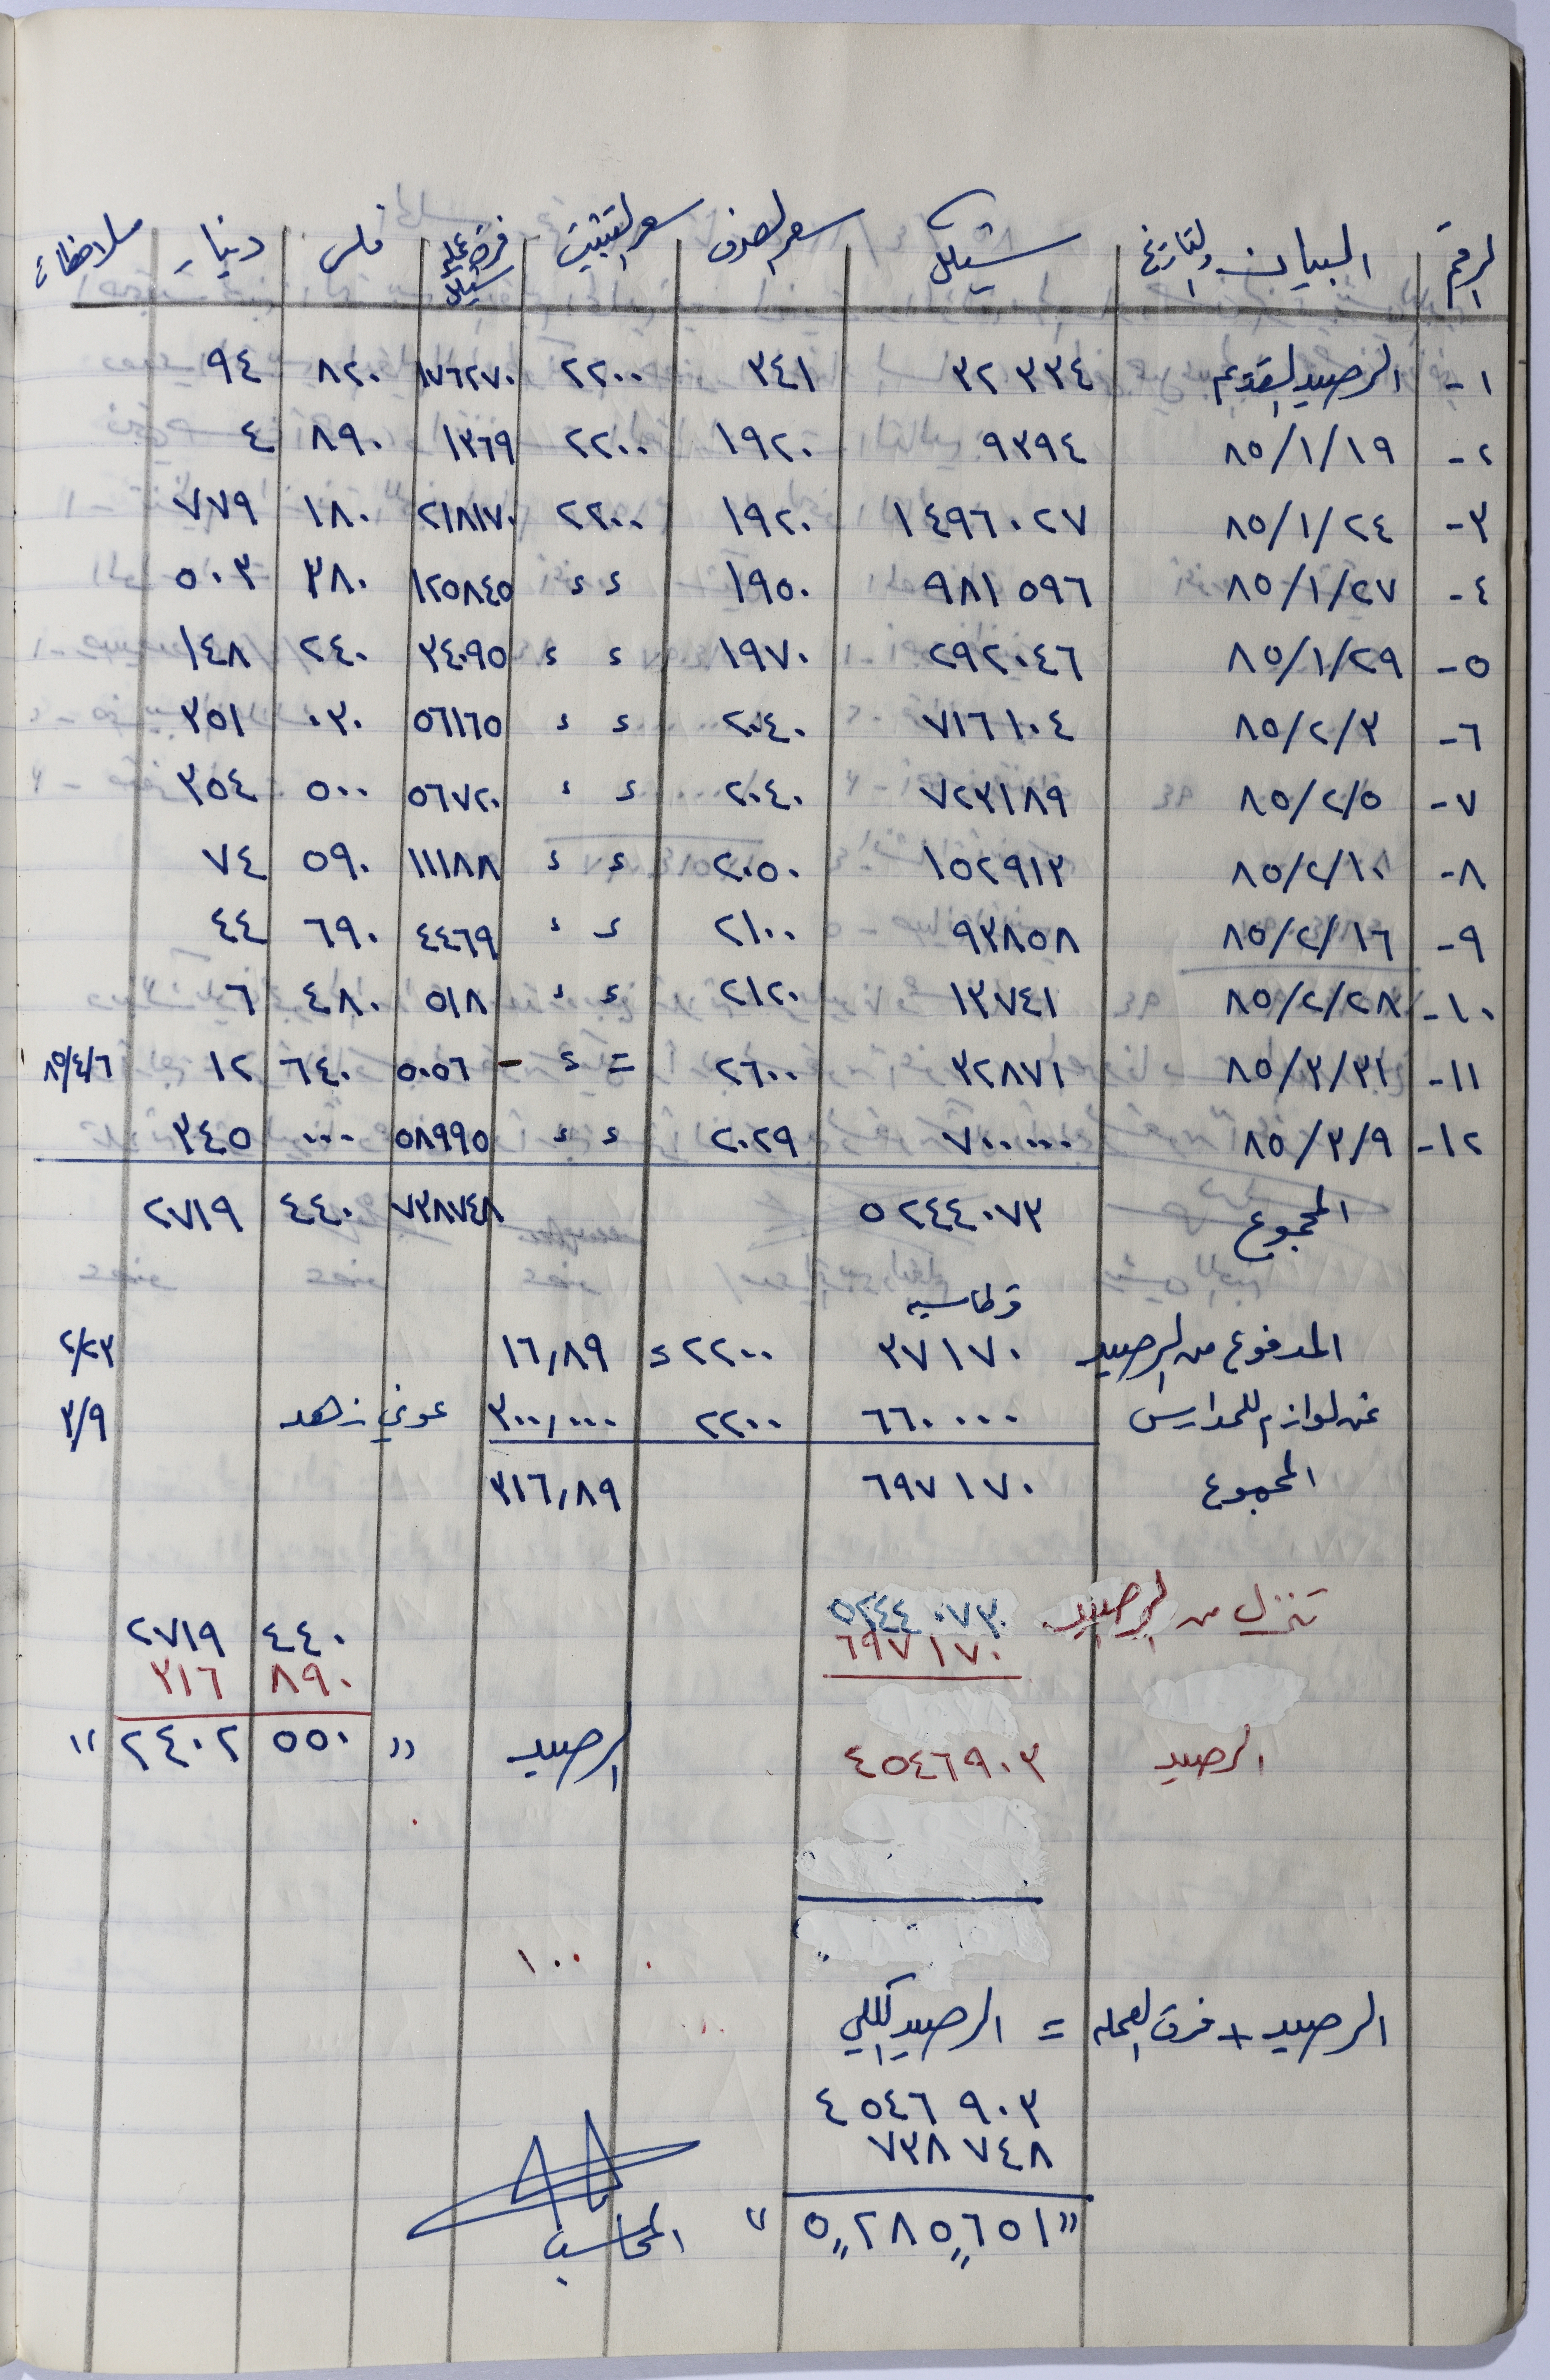 الرقم البيان والتاريخ شيكل سعر الصرف سعر التثبيت فرق عملة شيكل فلس دينار ملاحظات
١- الرصيد القديم ٣٢٣٣٤ ٣٤١ ٢٢٠٠ ١٧٦٢٧٠ ٨٢٠ ٩٤
٢- ٨٥/١/١٩ ٩٣٩٤ ١٩٢٠ ٢٢٠٠ ١٣٦٩ ٨٩٠ ٤
٣- ٨٥/١/٢٤ ١٤٩٦٠٢٧ ١٩٢٠ ٢٢٠٠ ٢١٨١٧٠ ١٨٠ ٧٧٩
٤- ٨٥/١/٢٧ ٩٨١٥٩٦ ١٩٥٠ ء ء ١٢٥٨٤٥ ٣٨٠ ٥٠٣
٥- ٨٥/١/٢٩ ٢٩٢٠٤٦ ١٩٧٠ ء ء ٣٤٠٩٥ ٢٤٠ ١٤٨
٦- ٨٥/٢/٣ ٧١٦١٠٤ ٢٠٤٠ ء ء ٥٦١٦٥ ٠٣٠ ٣٥١
٧- ٨٥/٢/٥ ٧٢٣١٨٩ ٢٠٤٠ ء ء ٥٦٧٢٠ ٥٠٠ ٣٥٤
٨- ٨٥/٢/١٠ ١٥٢٩١٣ ٢٠٥٠ ء ء ١١١٨٨ ٥٩٠ ٧٤
٩- ٨٥/٢/١٦ ٩٣٨٥٨ ٢١٠٠ ء ء ٤٤٦٩ ٦٩٠ ٤٤
١٠- ٨٥/٢/٢٨ ١٣٧٤١ ٢١٢٠ ء ء ٥١٨ ٤٨٠ ٦
١١- ٨٥/٣/٣١ ٣٢٨٧١ ٢٦٠٠ = ء - ٥٠٥٦ ٦٤٠ ١٢ ٨٥/٤/٦
١٢- ٨٥/٣/٩ ٧٠٠٠٠٠ ٢٠٢٩ ء ء ٥٨٩٩٥ ٠٠٠ ٣٤٥
المجموع ٥٢٤٤٠٧٣ ٧٣٨٧٤٨ ٤٤٠ ٢٧١٩
قرطاسيه
المدفوع من الرصيد ٣٧١٧٠ ٢٢٠٠ ء ١٦,٨٩ ٢/٢٣
ثمن لوازم للمدارس ٦٦٠٠٠٠ ٢٢٠٠ ٣٠٠,٠٠٠ عوني زهد ٣/٩
المجموع ٦٩٧١٧٠ ٣١٦,٨٩
تنزل من الرصيد ٥٢٤٤٠٧٣ ٤٤٠ ٢٧١٩
٦٩٧١٧٠ ٨٩٠ ٣١٦
الرصيد ٤٥٤٦٩٠٣ الرصيد " ٥٥٠ ٢٤٠٢ "
١٠٠
الرصيد + فرق العملة = الرصيد الكلي
٤٥٤٦٩٠٣
٧٣٨٧٤٨
"٥,,٢٨٥,,٦٥١"
المحاسب